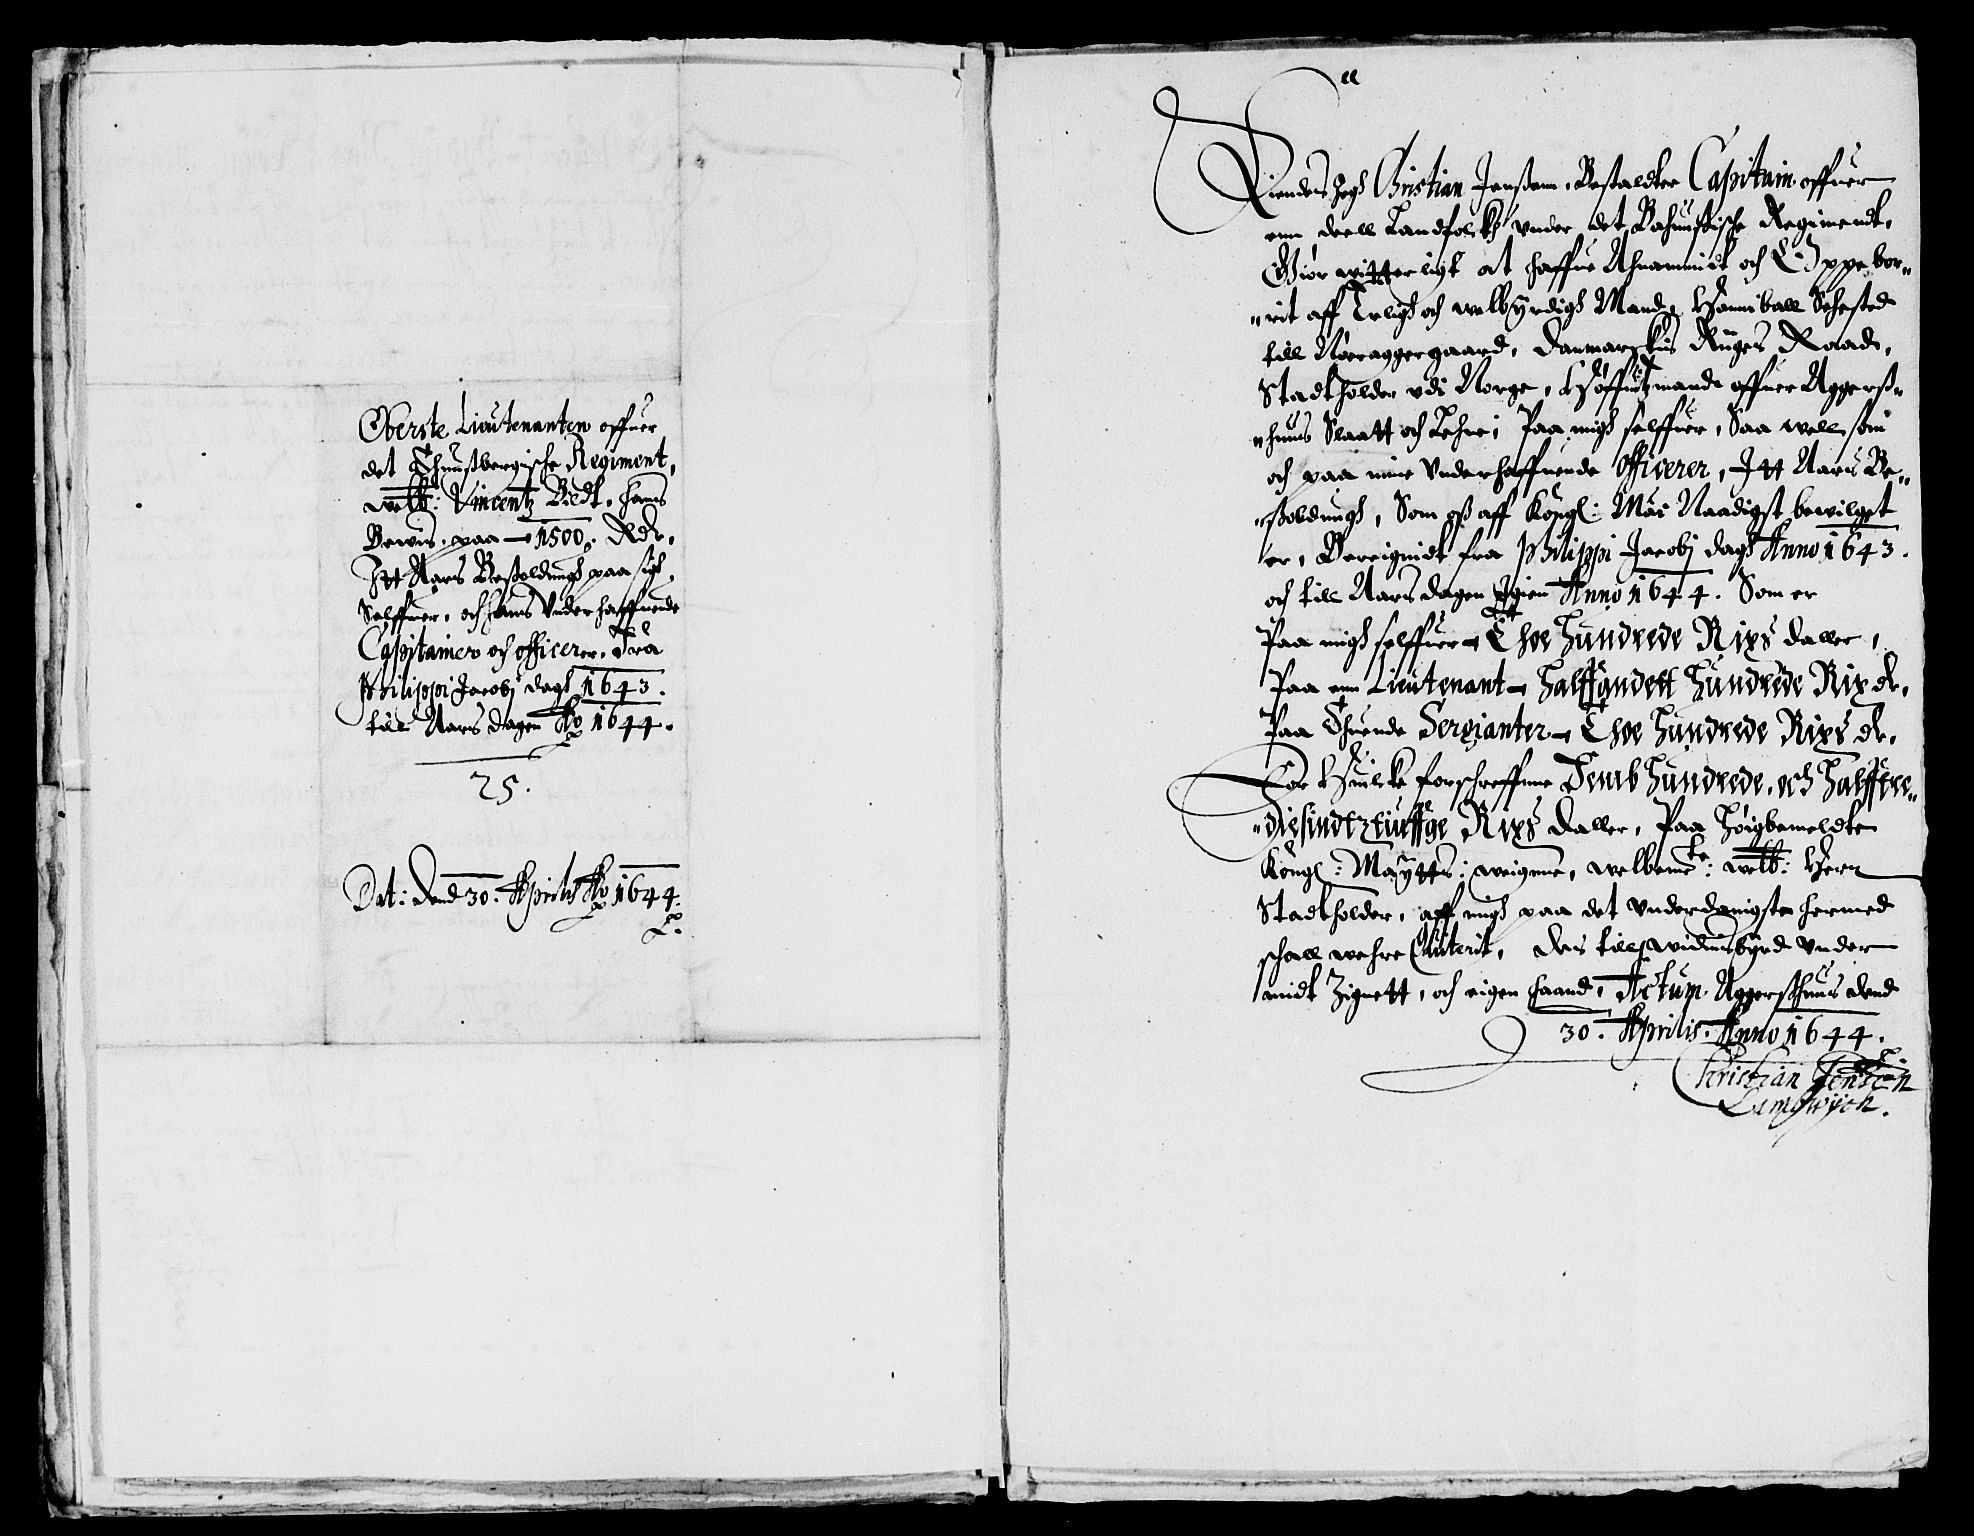 Oberste Lieutenanten offuer
det Thunsbergische Regiment,
welb: Vincentz Bildt, hans
Bewis, paa 1500. Rdr.
Itt Aars Besoldungh paa sigh
Selffuer, och hans Underhaffuende
Capitainer och officerer. Fra
Philippi Jacobj dagh 1643.
till Aars dagen Ao 1644.
25.
Dat: Dend 30. Aprilis Ao 1644.
Kiendes Jegh Christian Jenssenn, Bestaldter Capitain offuer
enn deell Landfolckh under det Bahuusische Regimendt,
Giør witterligt at haffue Annammidt och Oppebor-
-rit aff Erligh och welbyrdigh Mand, Hanniball Sehested
till Nøeraggergaard, Danmarckis Riiges Raadt,
Stadtholder udi Norge, Høffuitzmandt offuer Aggerss-
-huus Slaatt och Lehn; Paa migh selffuer, Saa well som
och paa mine Underhaffuende Officerer, Itt Aars Be-
-ssoldungh, Som oss aff Kongl: Mai: Naadigst bewilget
er, Bereignidt fra Philippi Jacobj dagh Anno 1643.
och till Aars dagen Igien Anno 1644. Som er
Paa migh selffuer Thoe Hundrede Rixs daller,
Paa enn Lieutenant Halffandett Hundrede Rix dr.
Paa Thuende Sergianter Thoe Hundrede Rixs dr.
For Huilcke forschreffne Femb Hundrede, och Halfftre-
-diesindtztiuffge Rixs Daller, Paa Høigbemeldte
Kongl: Maÿtts: weigne, welbemte: welb: Herr
Stadtholder, aff migh paa det Underdanigste hermed
schall wehre Quiterit, Des till widnisbyrd Under
mitt Zignett, och eigen haand, Actum Aggershuus Dend
30. Aprilis. Anno 1644.
Christian Jensen